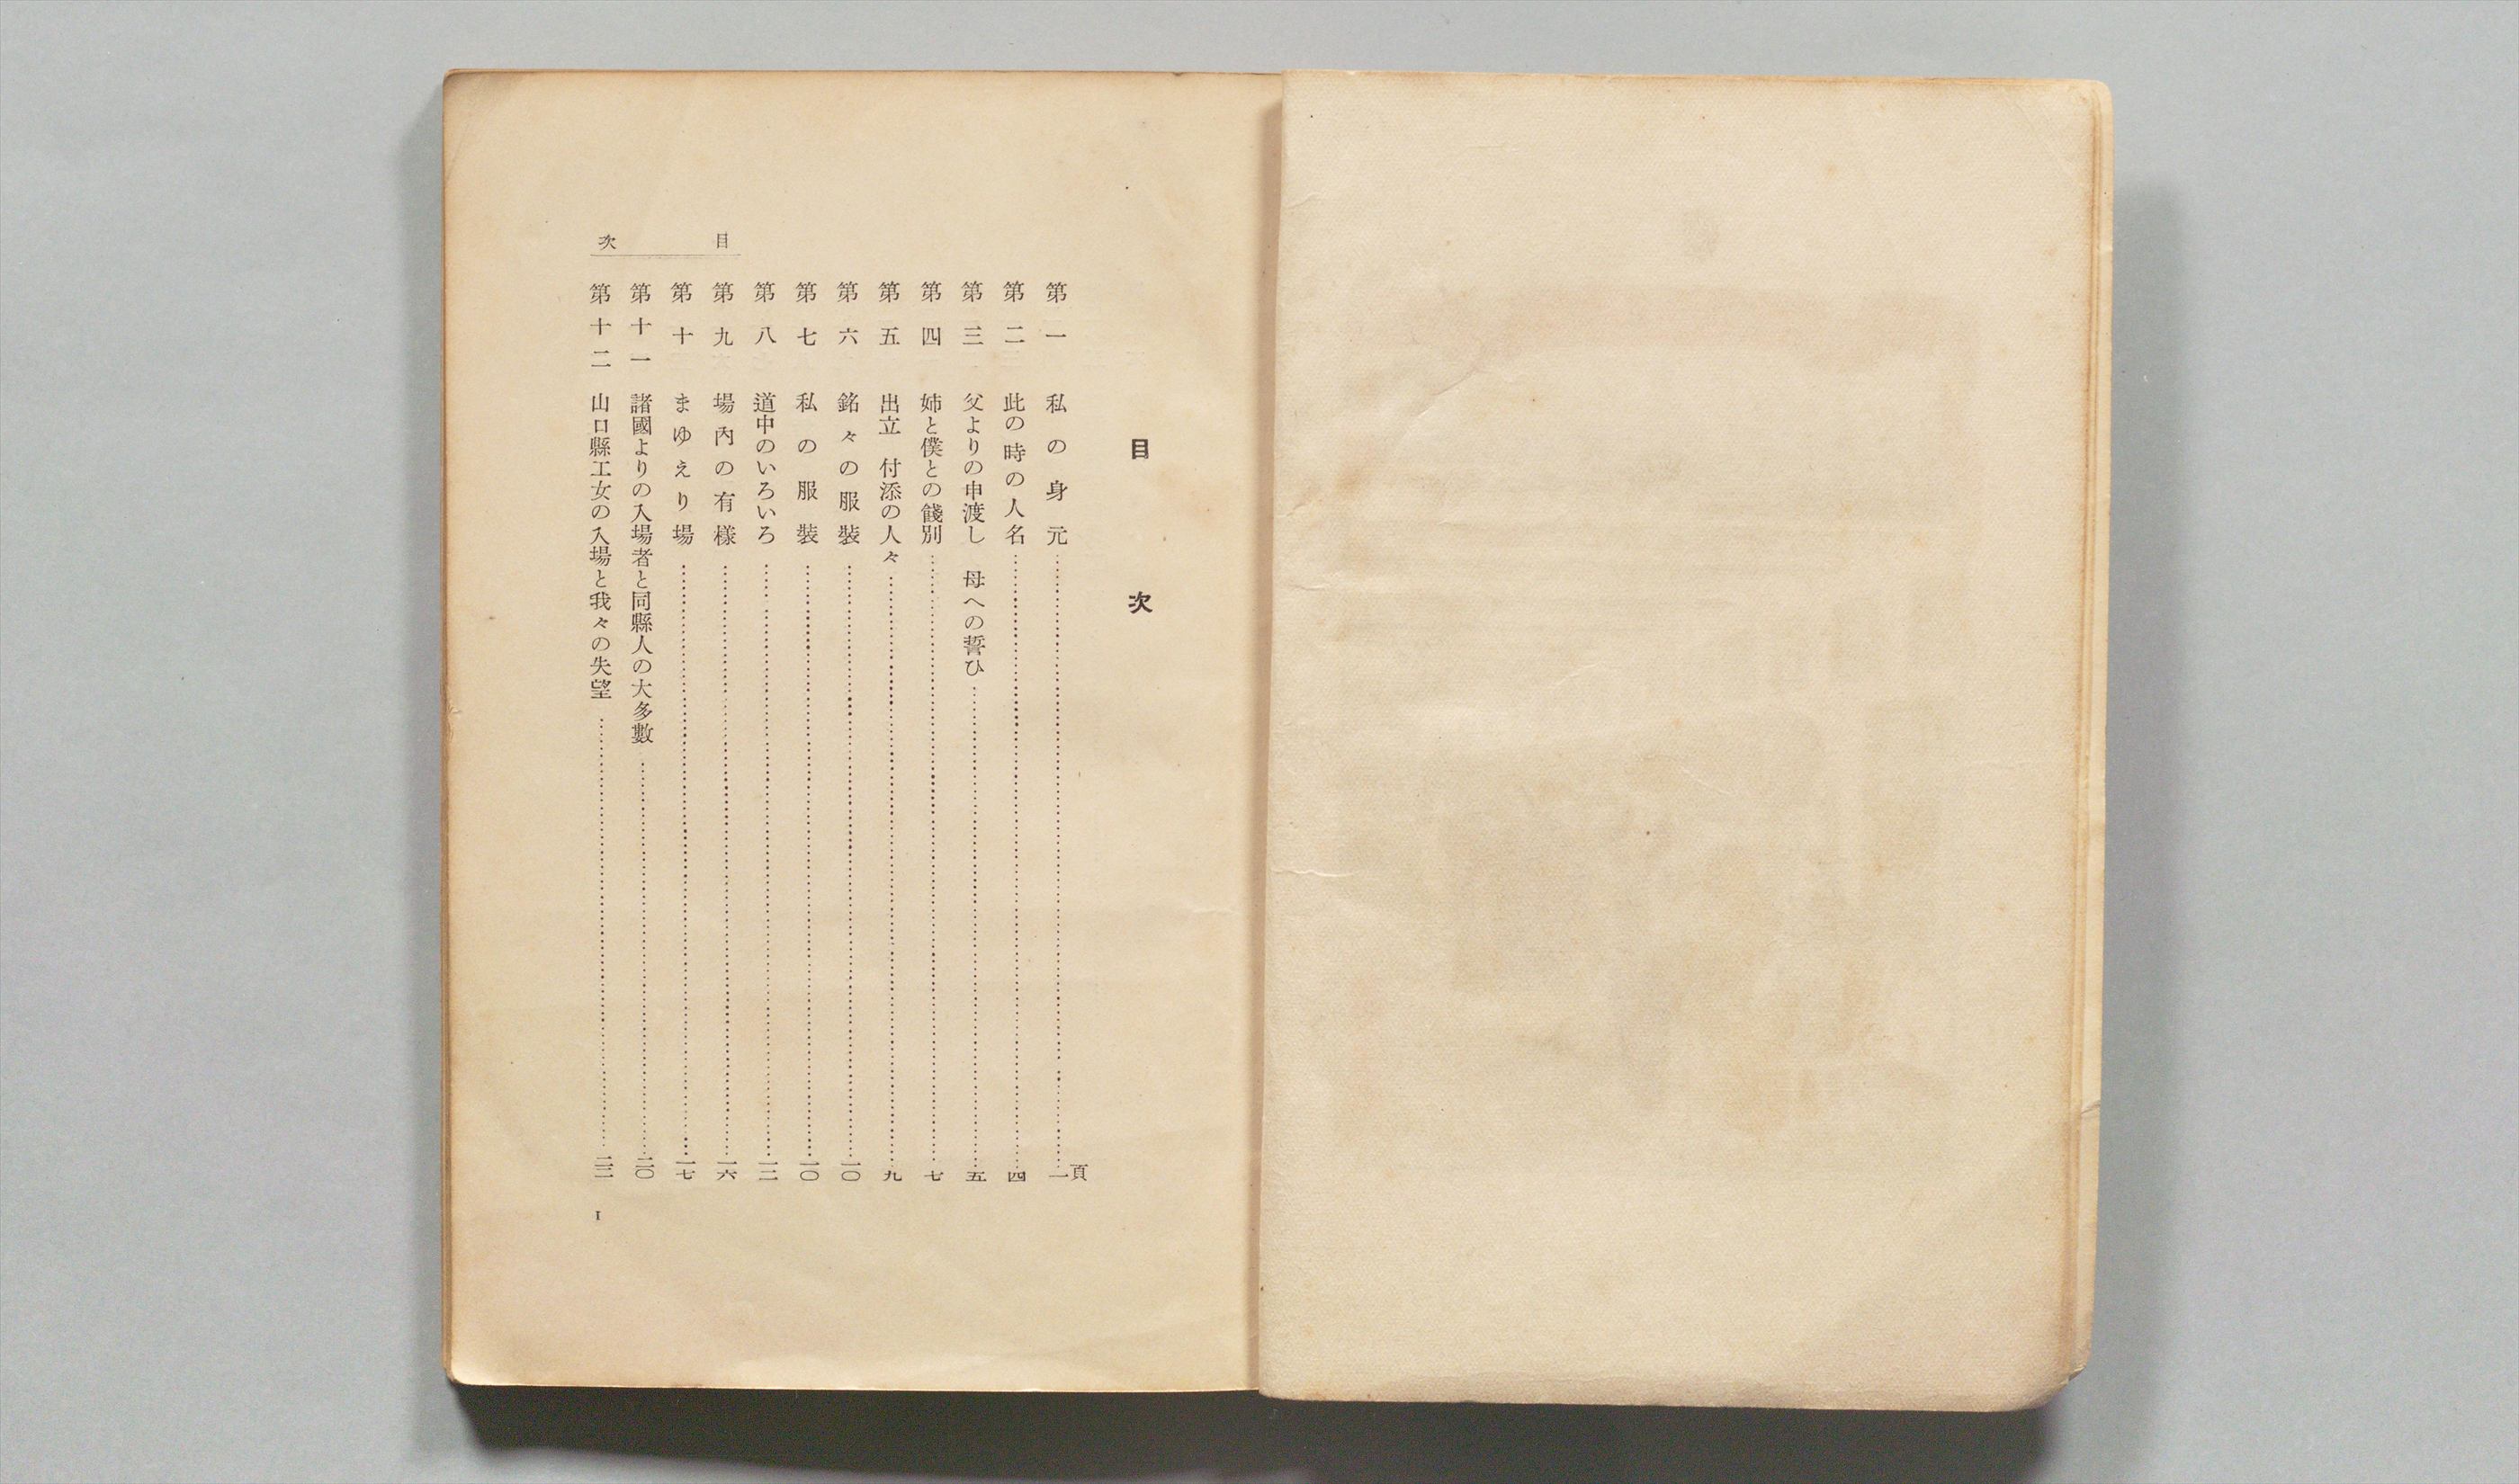 目次
目次
頁
第一 私の身元……一
第二 此の時の人名……四
第三 父よりの申渡し 母への誓ひ……五
第四 姉と僕との餞別……七
第五 出立 付添の人々……九
第六 銘々の服裝……一〇
第七 私の服裝……一〇
第八 道中のいろいろ……一二
第九 場內の有樣……一六
第十 まゆえり場……一七
第十一 諸國よりの入場者と同縣人の大多數……二〇
第十二 山口縣工女の入場と我々の失望……
1